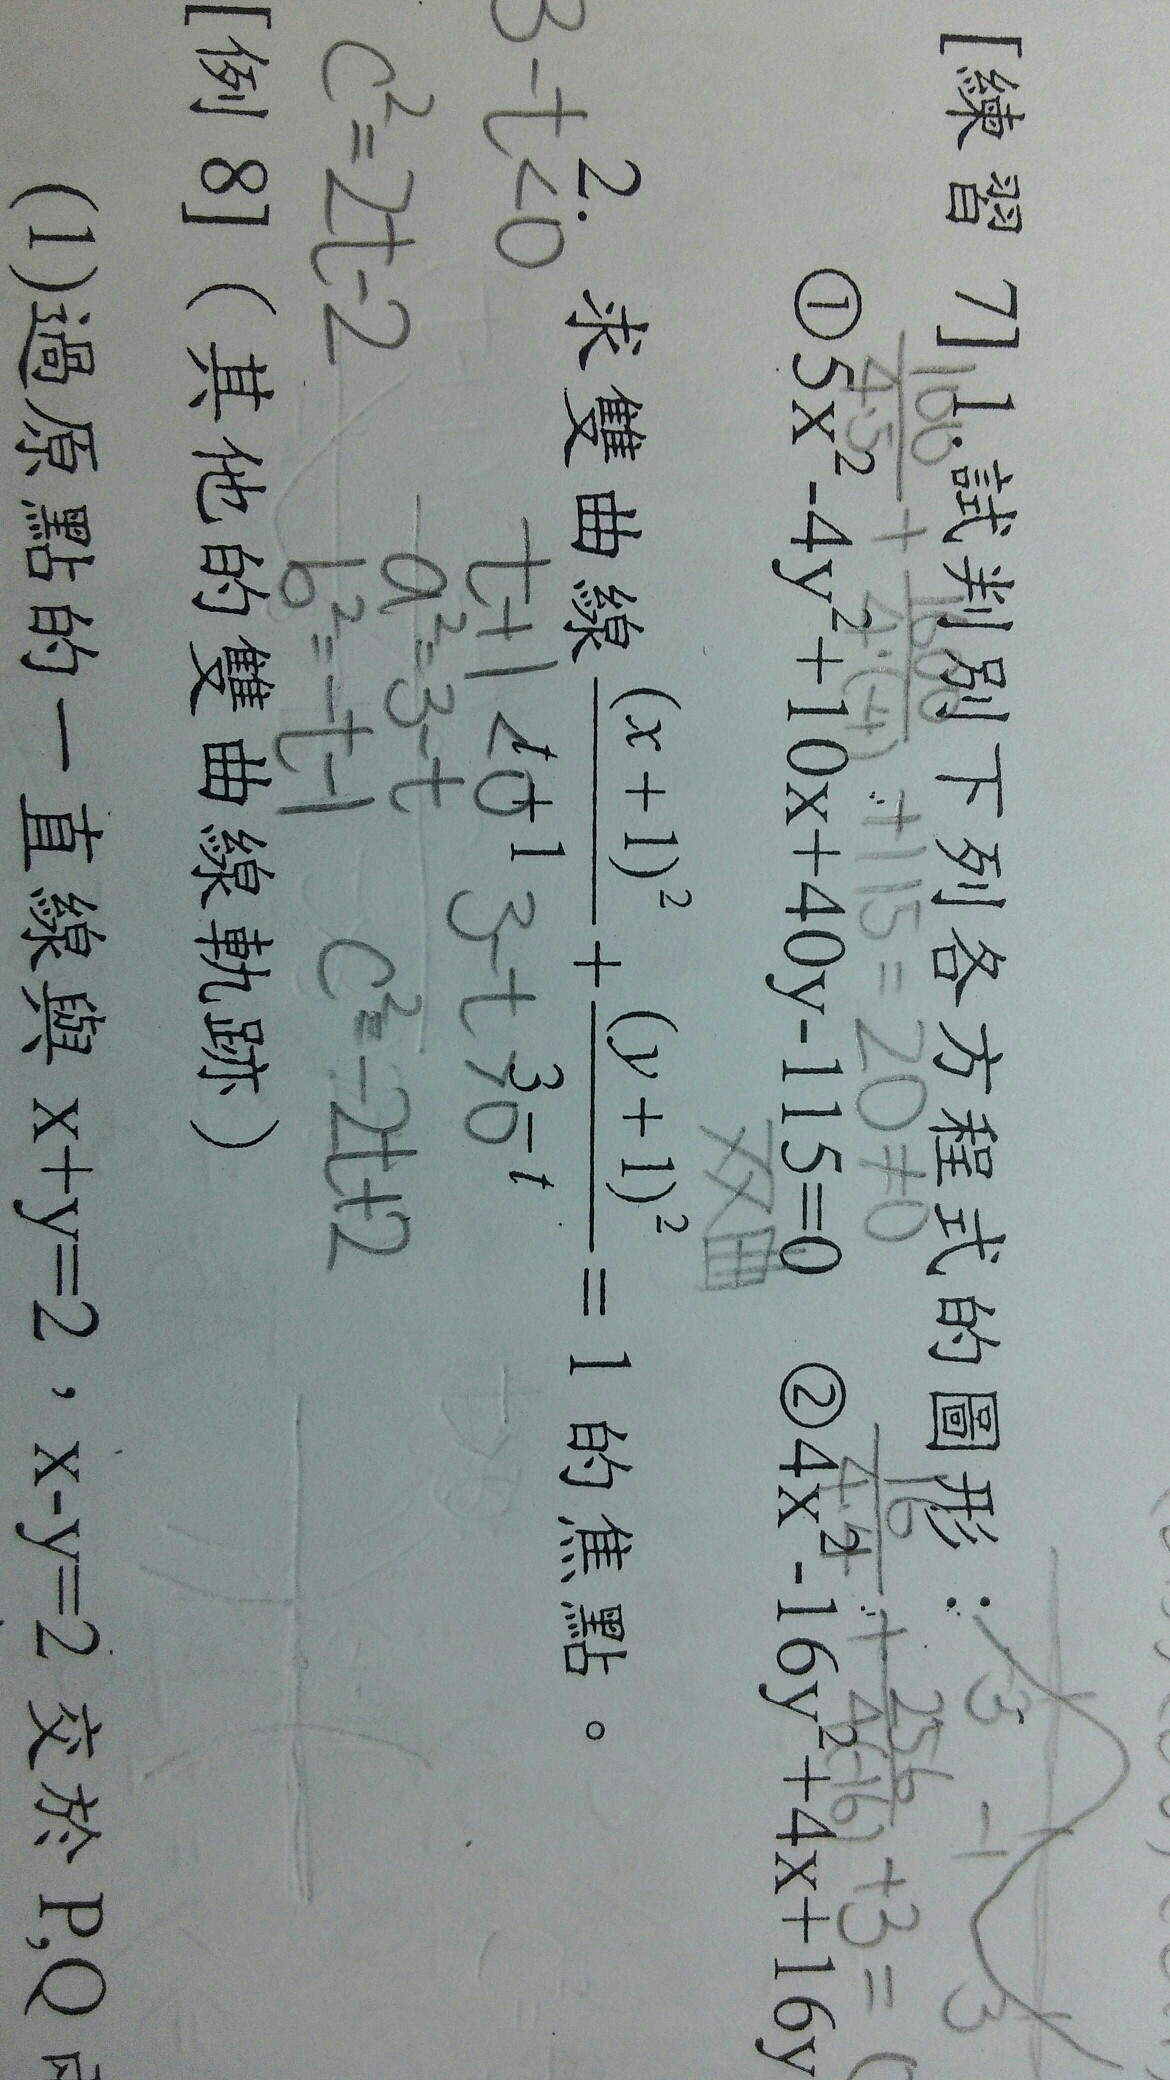 [練習 7] 1.試判別下列各方程式的圖形：
①5x²-4y²+10x+40y-115=0 ②4x²-16y²+4x+16y
100/4·5 + 1600/4·(-4) + 115 = 20 ≠ 0
16/4·4 + 256/4(-16) + 3 =
双曲
-3 -1 3
2. 求雙曲線 (x+1)²/(t+1) + (y+1)²/(3-t) = 1 的焦點。
3-t<0
t+1<0 3-t>0
a²=3-t
b²=-t-1
c²=2t-2
c²=-2t+2
[例 8]（其他的雙曲線軌跡）
(1)過原點的一直線與 x+y=2，x-y=2 交於 P,Q